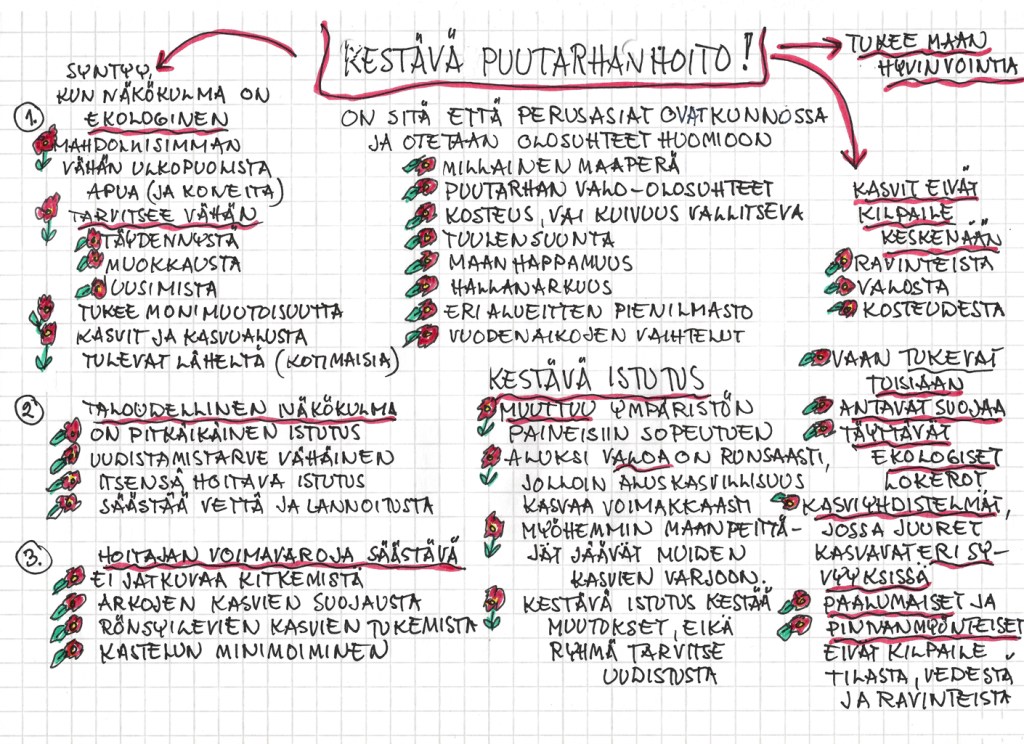 KESTÄVÄ PUUTARHANHOITO!
SYNTYY,
KUN NÄKÖKULMA ON
1. EKOLOGINEN
MAHDOLLISIMMAN
VÄHÄN ULKOPUOLISTA
APUA (JA KONEITA)
TARVITSEE VÄHÄN
TÄYDENNYSTÄ
MUOKKAUSTA
UUSIMISTA
TUKEE MONIMUOTOISUUTTA
KASVIT JA KASVUALUSTA
TULEVAT LÄHELTÄ (KOTIMAISIA)
2. TALOUDELLINEN NÄKÖKULMA
ON PITKÄIKÄINEN ISTUTUS
UUDISTAMISTARVE VÄHÄINEN
ITSENSÄ HOITAVA ISTUTUS
SÄÄSTÄÄ VETTÄ JA LANNOITUSTA
3. HOITAJAN VOIMAVAROJA SÄÄSTÄVÄ
EI JATKUVAA KITKEMISTÄ
ARKOJEN KASVIEN SUOJAUSTA
RÖNSYILEVIEN KASVIEN TUKEMISTA
KASTELUN MINIMOIMINEN
ON SITÄ ETTÄ PERUSASIAT OVAT KUNNOSSA
JA OTETAAN OLOSUHTEET HUOMIOON
MILLAINEN MAAPERÄ
PUUTARHAN VALO-OLOSUHTEET
KOSTEUS, VAI KUIVUUS VALLITSEVA
TUULENSUUNTA
MAAN HAPPAMUUS
HALLANARKUUS
ERI ALUEITTEN PIENILMASTO
VUODENAIKOJEN VAIHTELUT
KESTÄVÄ ISTUTUS
MUUTTUU YMPÄRISTÖN
PAINEISIIN SOPEUTUEN
ALUKSI VALOA ON RUNSAASTI,
JOLLOIN ALUSKASVILLISUUS
KASVAA VOIMAKKAASTI
MYÖHEMMIN MAANPEITTÄ-
JÄT JÄÄVÄT MUIDEN
KASVIEN VARJOON.
KESTÄVÄ ISTUTUS KESTÄÄ
MUUTOKSET, EIKÄ
RYHMÄ TARVITSE
UUDISTUSTA
TUKEE MAAN
HYVINVOINTIA
KASVIT EIVÄT
KILPAILE
KESKENÄÄN
RAVINTEISTA
VALOSTA
KOSTEUDESTA
VAAN TUKEVAT
TOISIAAN
ANTAVAT SUOJAA
TÄYTTÄVÄT
EKOLOGISET
LOKEROT
KASVIYHDISTELMÄT,
JOSSA JUURET
KASVAVAT ERI SY-
VYYKSISSÄ
PAALUMAISET JA
PINNANMYÖNTEISET
EIVÄT KILPAILE
TILASTA, VEDESTÄ
JA RAVINTEISTA